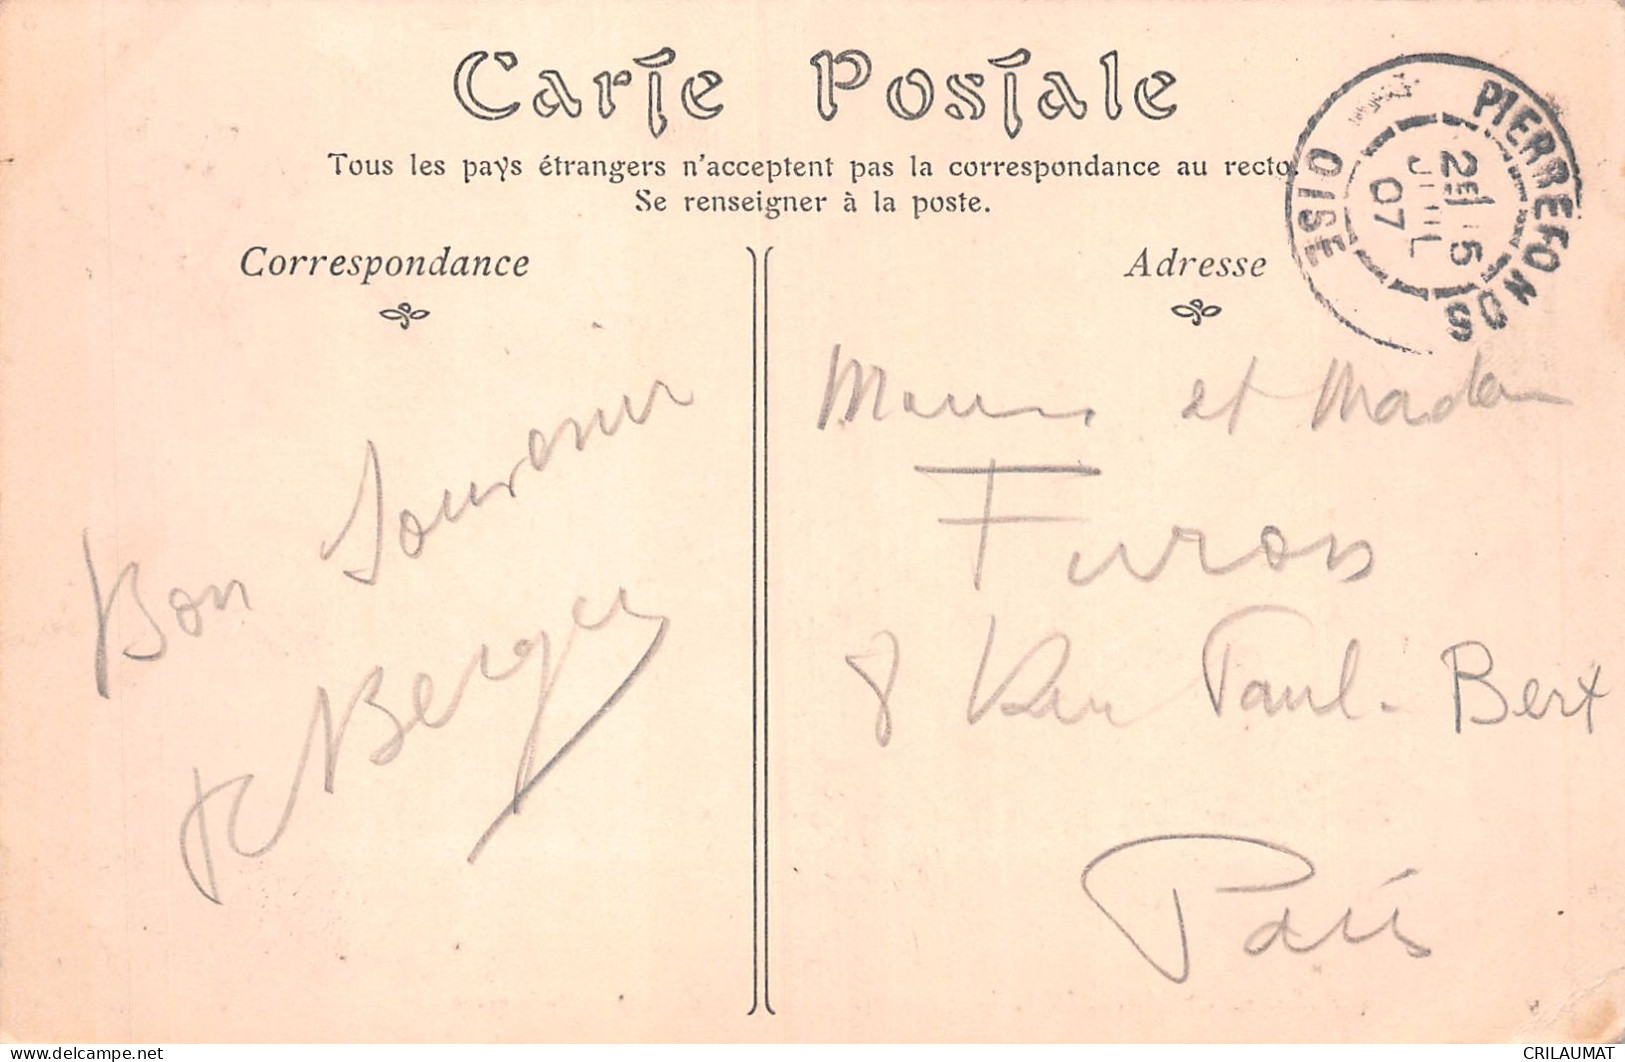 Carte Postale
Tous les pays étrangers n'acceptent pas la correspondance au recto.
Se renseigner à la poste.
Correspondance
Adresse
PIERREFONDS
OISE
JUIL
07
Bon Souvenir
Berger
et Madam
Furon
8 Rue Paul-Bert
Paris
CRILAUMAT